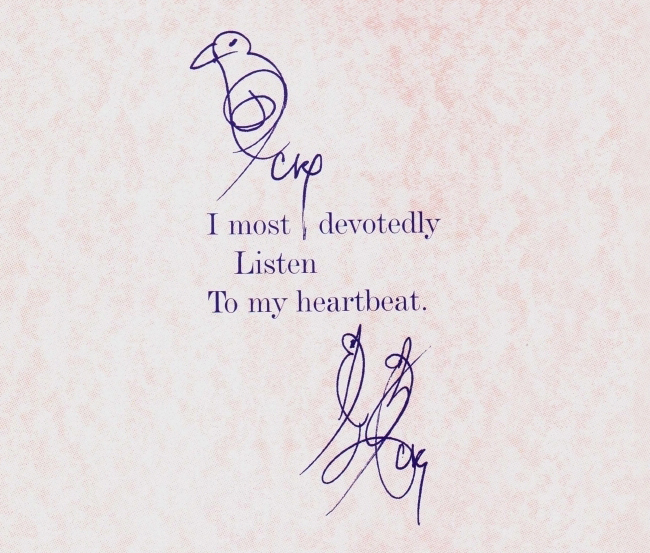 I most devotedly
Listen
To my heartbeat.